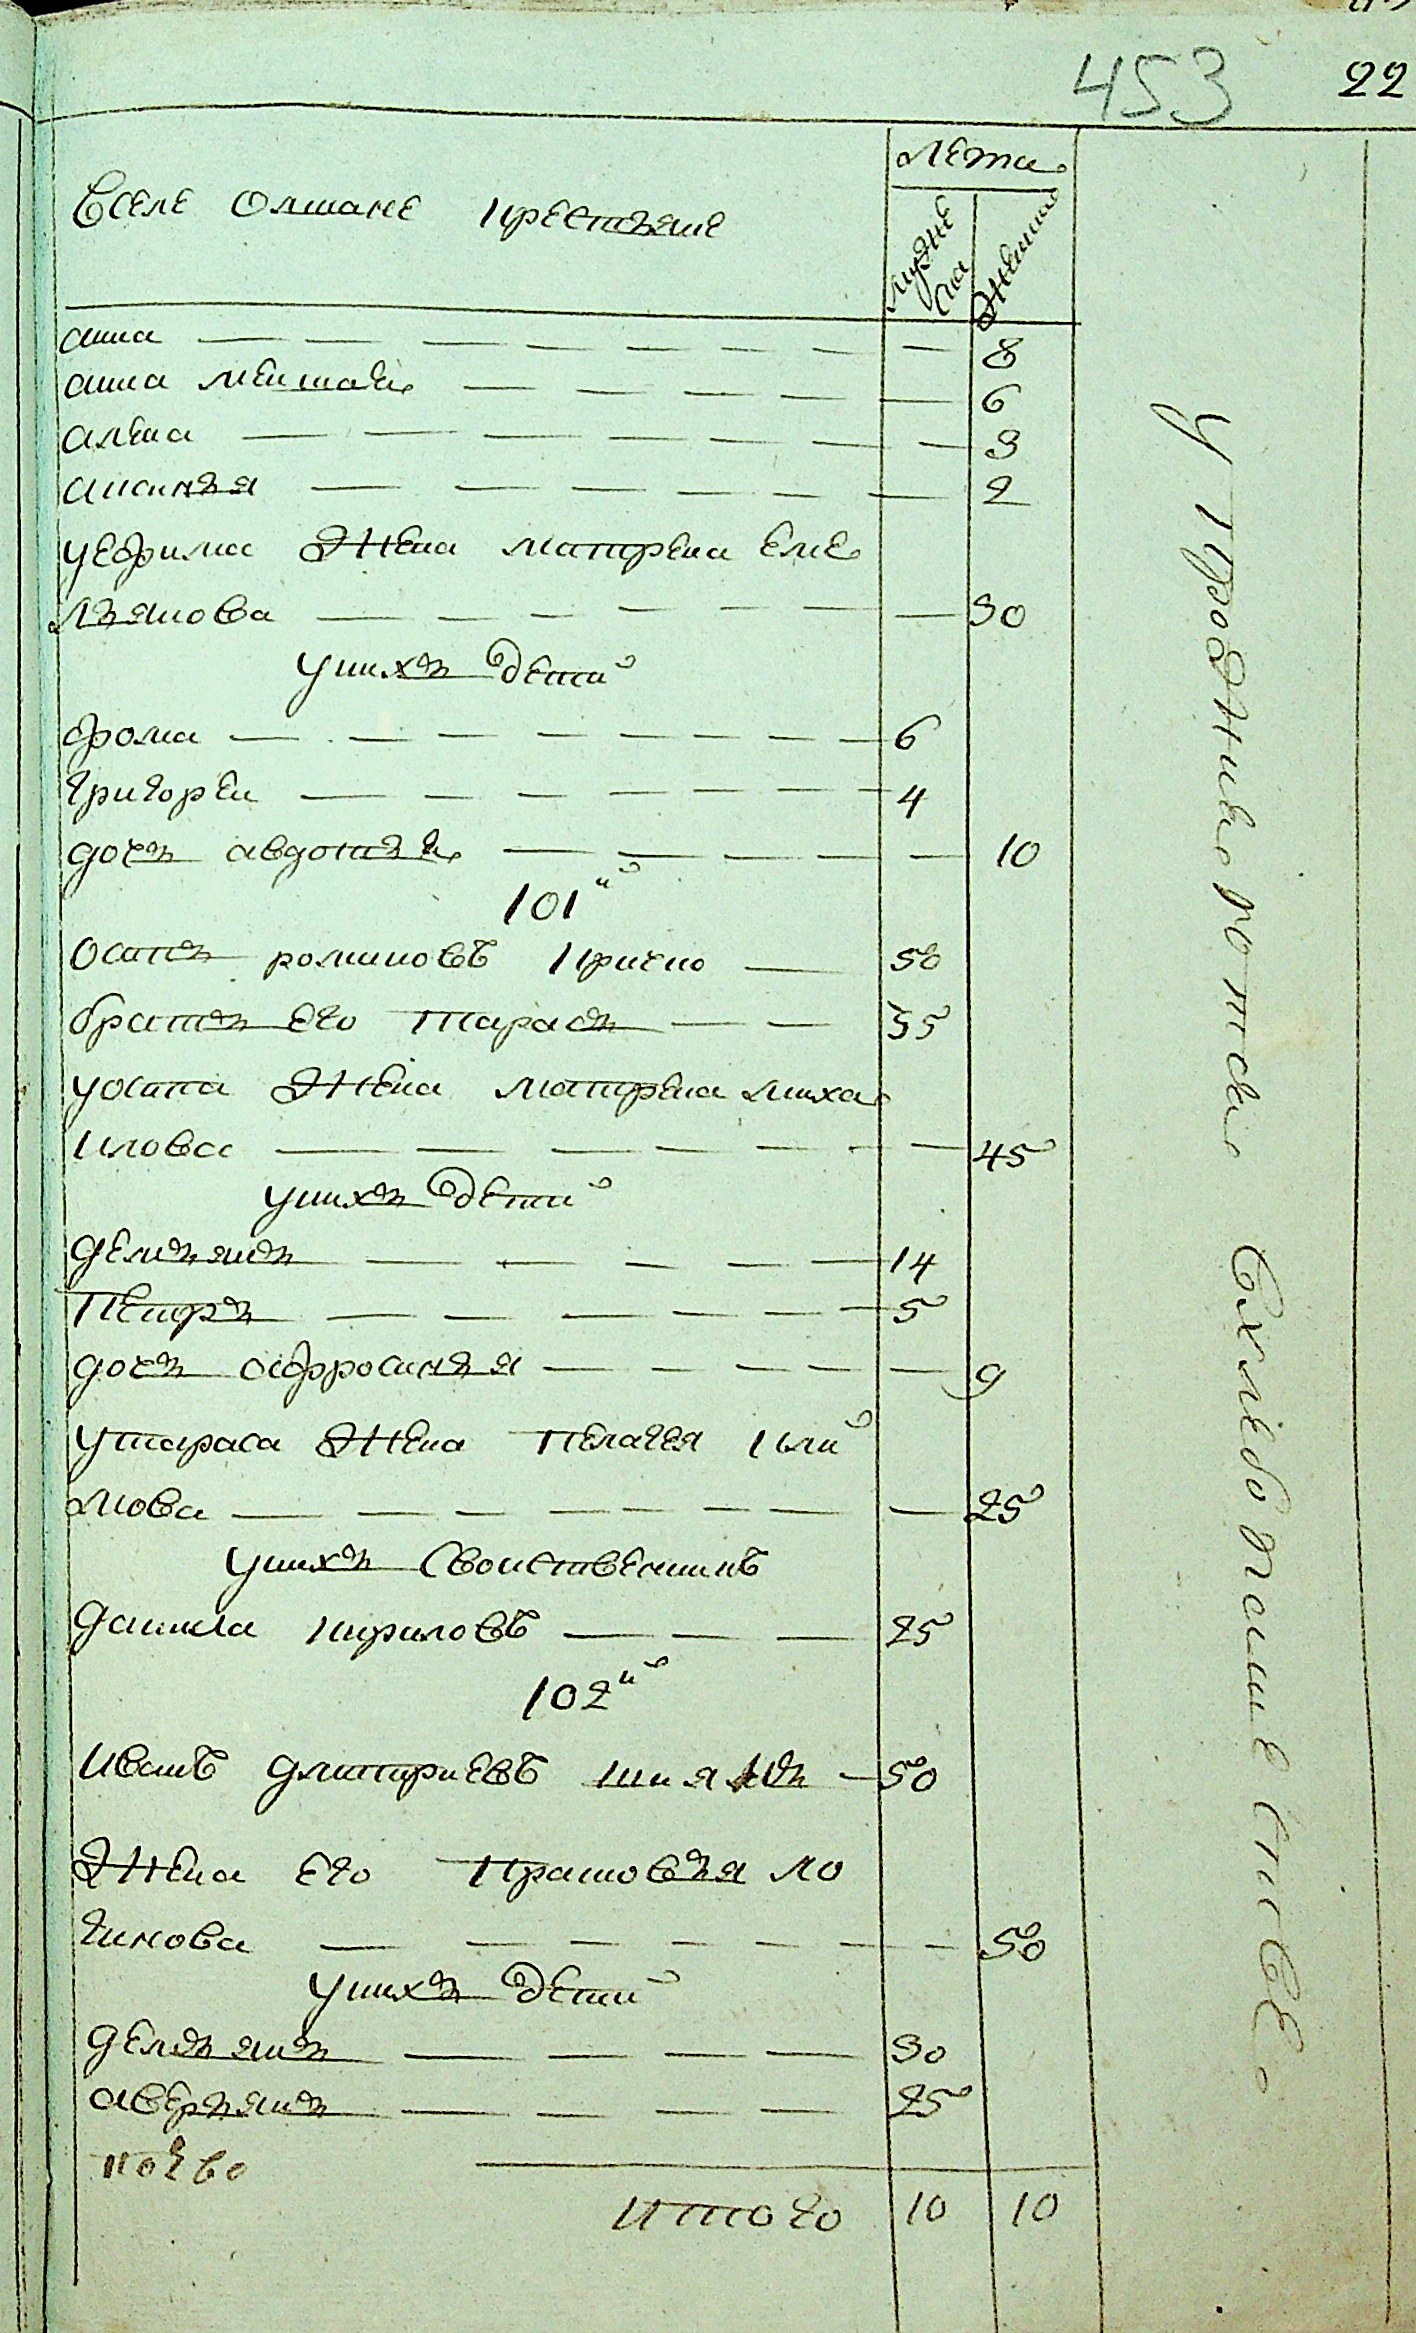 453 22
Вселе Олшане крестьяне
лета
мужеска
женска
анна — 8
анна меншаѧ — 6
алена — 3
аксинья — 2
уефима жена матрена еме
льянова — 30
унихъ дети
фома — 6
григореи — 4
дочь авдотья — 10
101й
Осипъ романовъ — 50
братъ его тарасъ — 35
уосипа жена матрена миха
илова — 45
унихъ дети
демьянъ — 14
петръ — 5
дочь афросинья — 9
утараса жена пелагея кли
мова — 25
унихъ свойственникъ
данила кириловъ — 25
102й
Иванъ дмитриевъ — 50
жена его прасковья ло
гинова — 50
унихъ дети
демьянъ — 30
аверьянъ — 25
итого 10 10
упражняютса вхлебопашестве